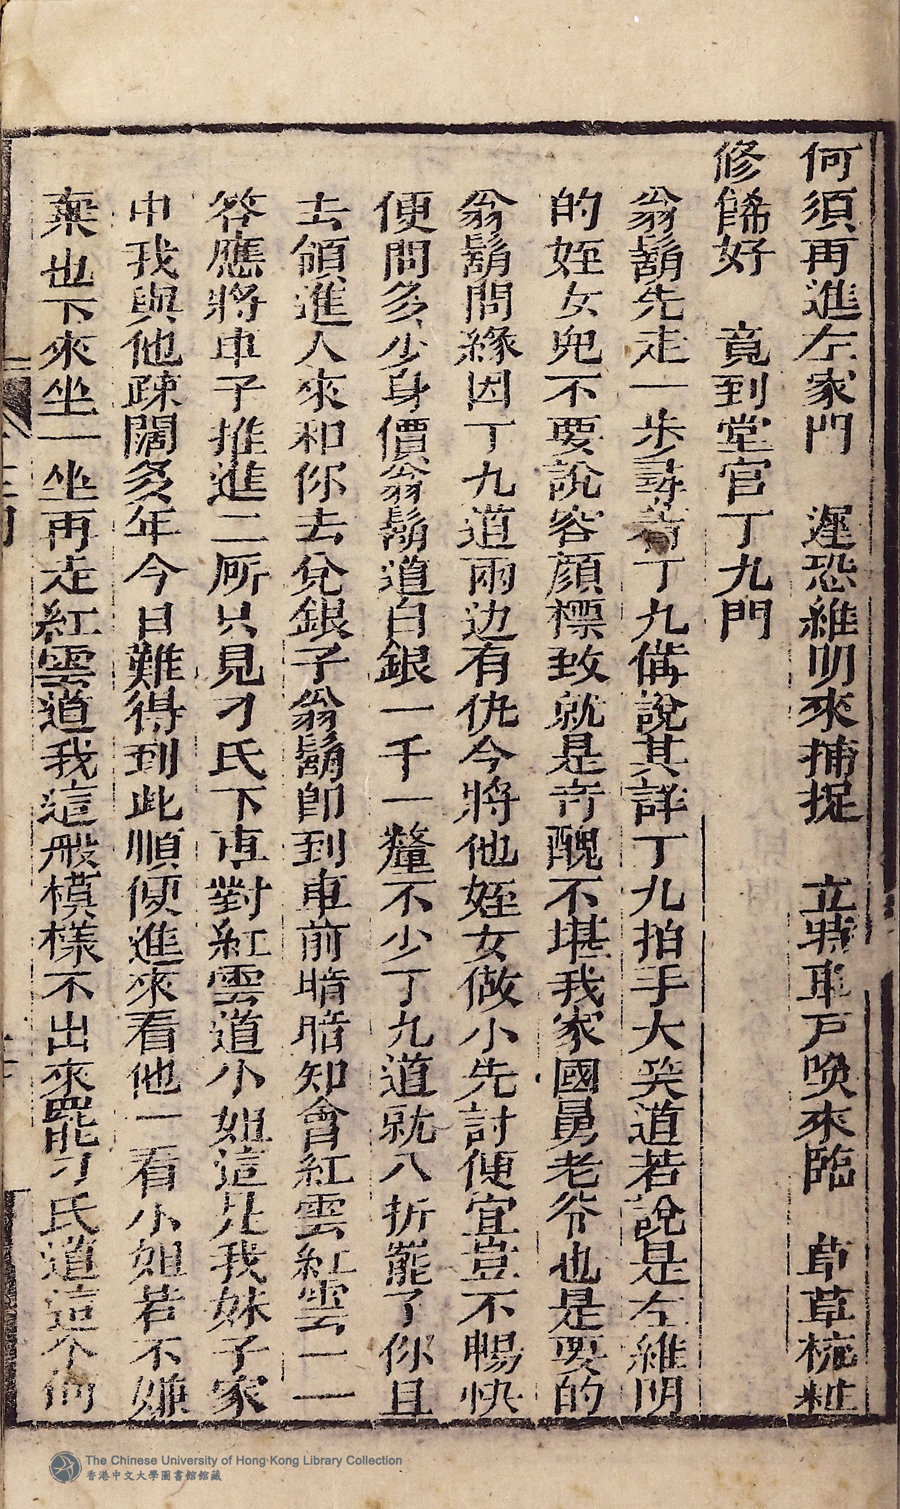 何須再進左家門　遲恐維明來捕捉　立時車戸喚來臨　草草梳粧
修餙好　竟到堂官丁九門
翁鬍先走一步尋着丁九備說其詳丁九拍手大笑道若說是左維明
的姪女兒不要說容顏標致就是奇醜不堪我家國舅老爷也是要的
翁鬍問緣因丁九道兩边有仇今將他姪女做小先討便宜豈不暢快
便問多少身價翁鬍道白銀一千一釐不少丁九道就八折罷了你且
去領進人來和你去兌銀子翁鬍卽到車前暗暗知會紅雲紅雲一一
答應將車子推進二所只見刁氏下車對紅雲道小姐這是我妹子家
中我與他疎闊多年今日難得到此順便進來看他一看小姐若不嫌
棄也下來坐一坐再走紅雲道我這般模樣不出來罷刁氏道這个何
The Chinese University of Hong Kong Library Collection
香港中文大學圖書館館藏